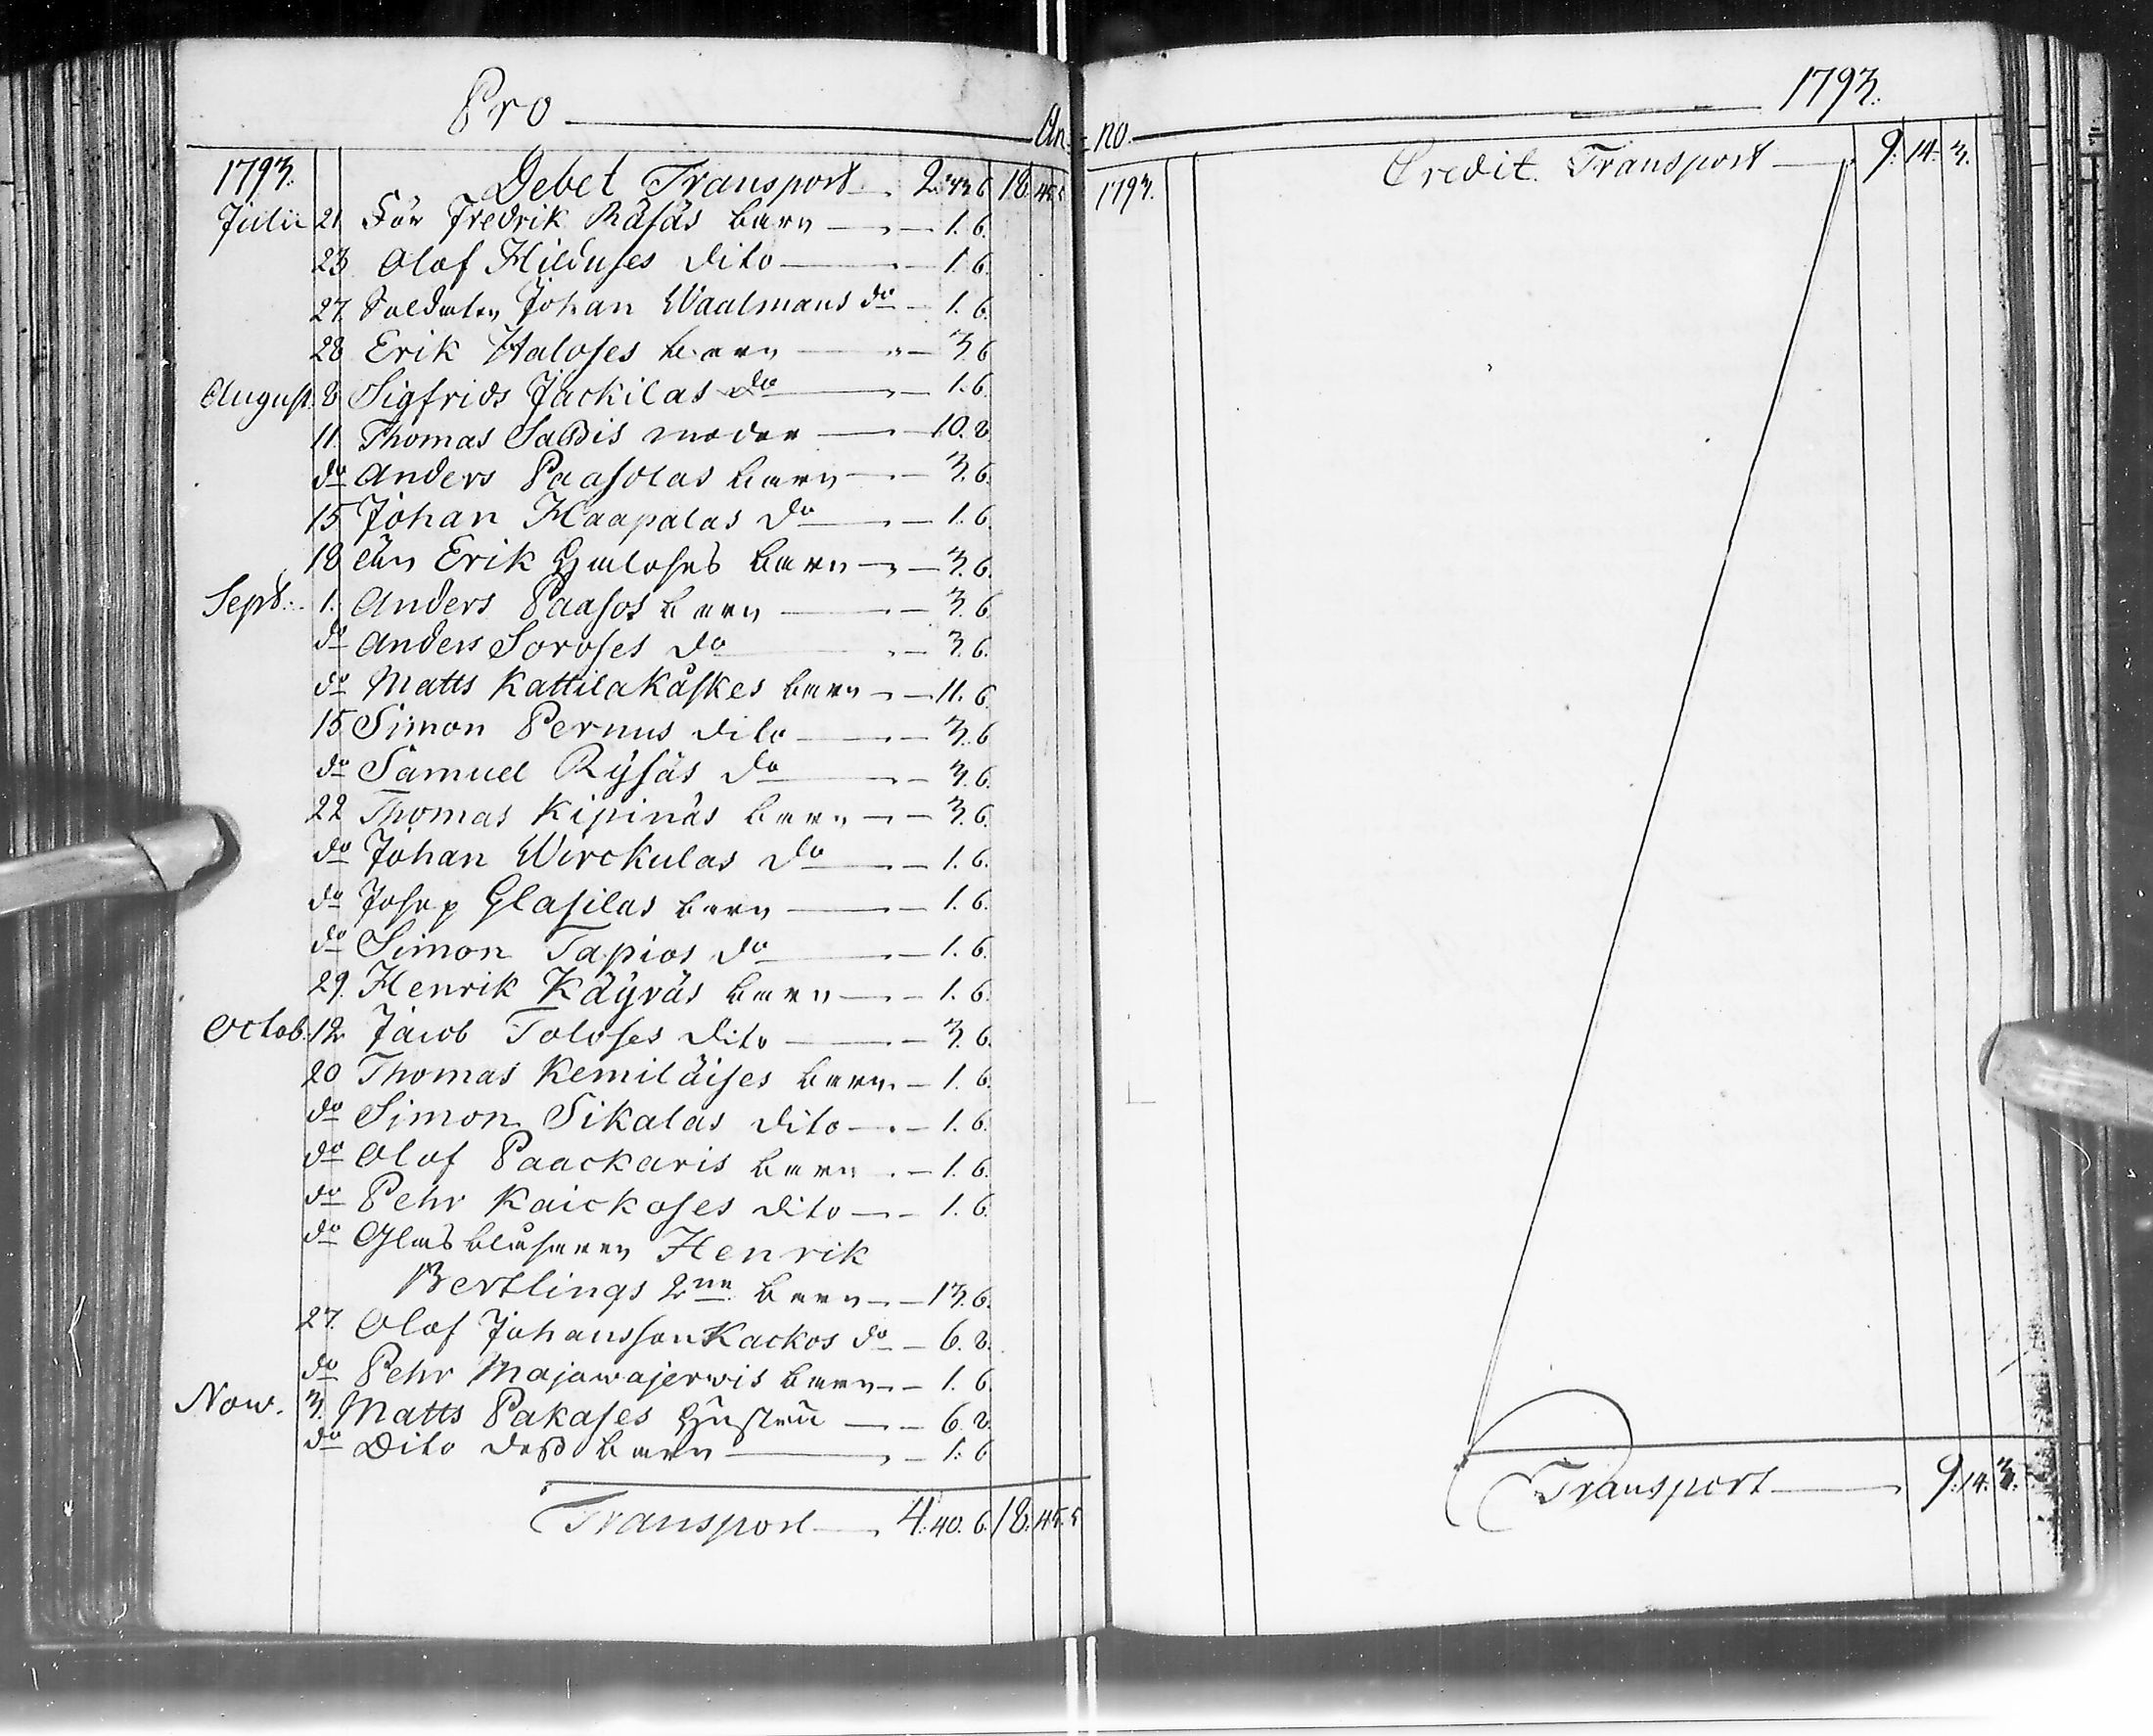 Pro An-
1793. Debet Transport 2.33.6 18.45.5
Julii 21 För Fredrik Räsäs barn 1.6.
23. Olof Hiluses dito 1.6.
27. Soldaten Johan Waalmans do 1.6.
28 Erik Haloses barn 3.6
August. 8 Sigfrids Jackilas do 1.6.
11. Thomas Saldis moder 10.8
do Anders Paasolas barn 3.6.
15 Johan Haapalas do 1.6.
18 Erik Haloses barn 3.6.
Sept. 1. Anders Paasos barn 3.6.
do Anders Soroses do 3.6.
do Matts Kattilakåskes barn 11.6.
15 Simon Pernus dito 3.6
do Samuel Rÿsäs do 3.6.
22 Thomas Kipinäs barn 3.6.
do Johan Wirckulas do 1.6.
do Josep Glasilas barn 1.6.
do Simon Tapios do 1.6.
29. Henrik Käÿräs barn 1.6.
Octob. 12 Jacob Toloses dito 3.6.
20 Thomas Kemiläises barn 1.6.
do Simon Sikalas dito 1.6.
do Olof Paackaris barn 1.6.
do Pehr Kaickoses dito 1.6.
do Glasblåsaren Henrik
Bertlings 2ne barn 13.6.
27. Olof Johansson Kackos do 6.8.
do Pehr Majawajerwis barn 1.6.
Now. 3. Matts Pakases Hustru 6.8.
do Dito dess barn 1.6
Transport 4.40.6. 18.45.5
no. 1793.
1793. Credit Transport 9.14.3.
Transport 9.14.3.